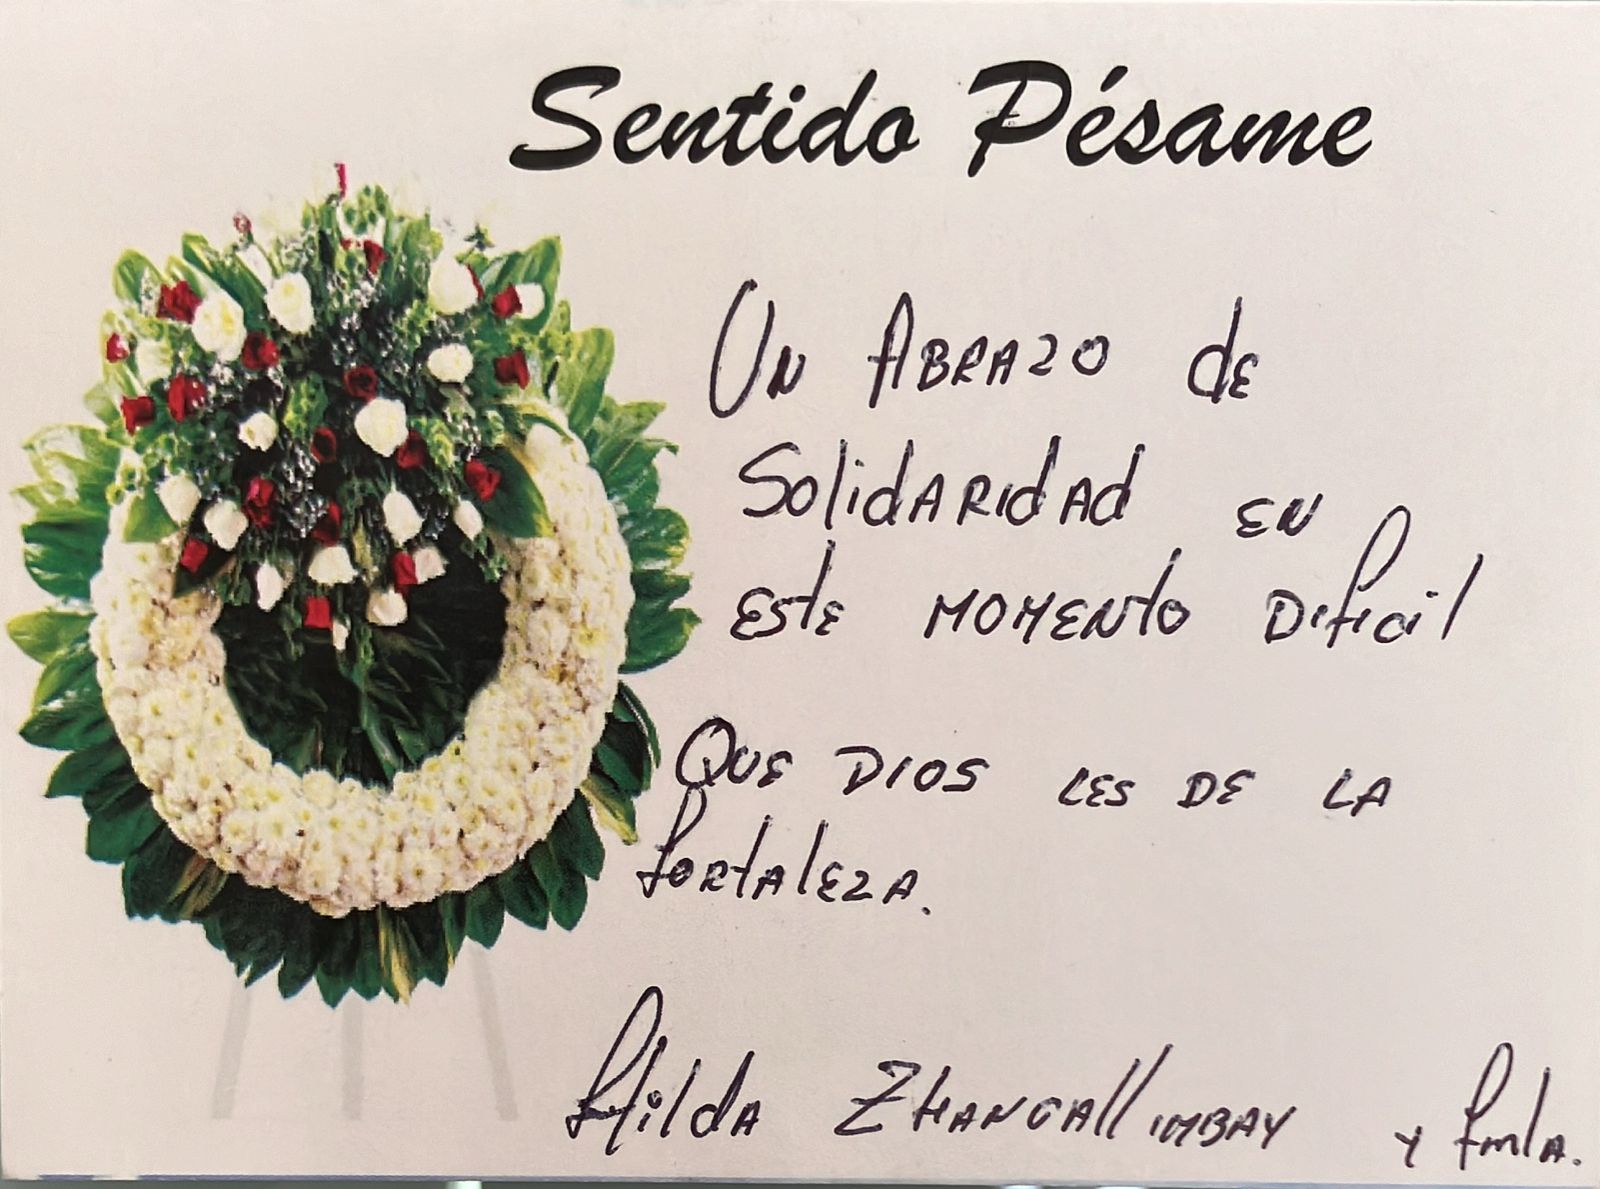 Sentido Pésame
Un Abrazo de
Solidaridad en
este momento Dificil
Que Dios les de la
fortaleza.
Hilda Zhangallimbay y fmla.